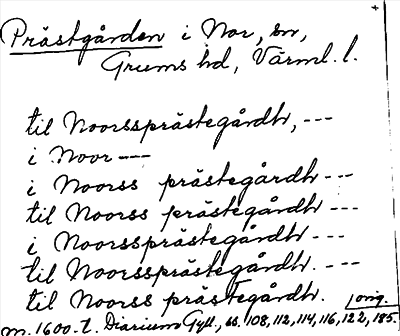 Prästgården i Nor, sn,
Grums hd, Värml. l.
til Noorssprästegårdh, ---
i Noor ---
i Noorss prästegårdh ---
til Noorss prästegårdh ---
i Noorssprästegårdh ---
til Noorssprästegårdh. ---
til Noorss prästegårdh. orig.
m. 1600-t. Diarium Gyll., ss. 108, 112, 114, 116, 122, 185.